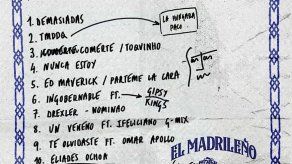 1. DEMASIADAS
2. TMDDQ
LA HINCHADA
PACO.
3. COMERTE COMERTE / TOQUINHO
4. NUNCA ESTOY
5. ED MAVERICK / PARTEME LA CARA
6. INGOBERNABLE FT. GIPSY
KINGS
7. DREXLER - NOMINAO
8. UN VENENO FT. JFELICIANO G-MIX
9. TE OLVIDASTE FT. OMAR APOLLO
10. ELIADES OCHOA
EL MADRILEÑO